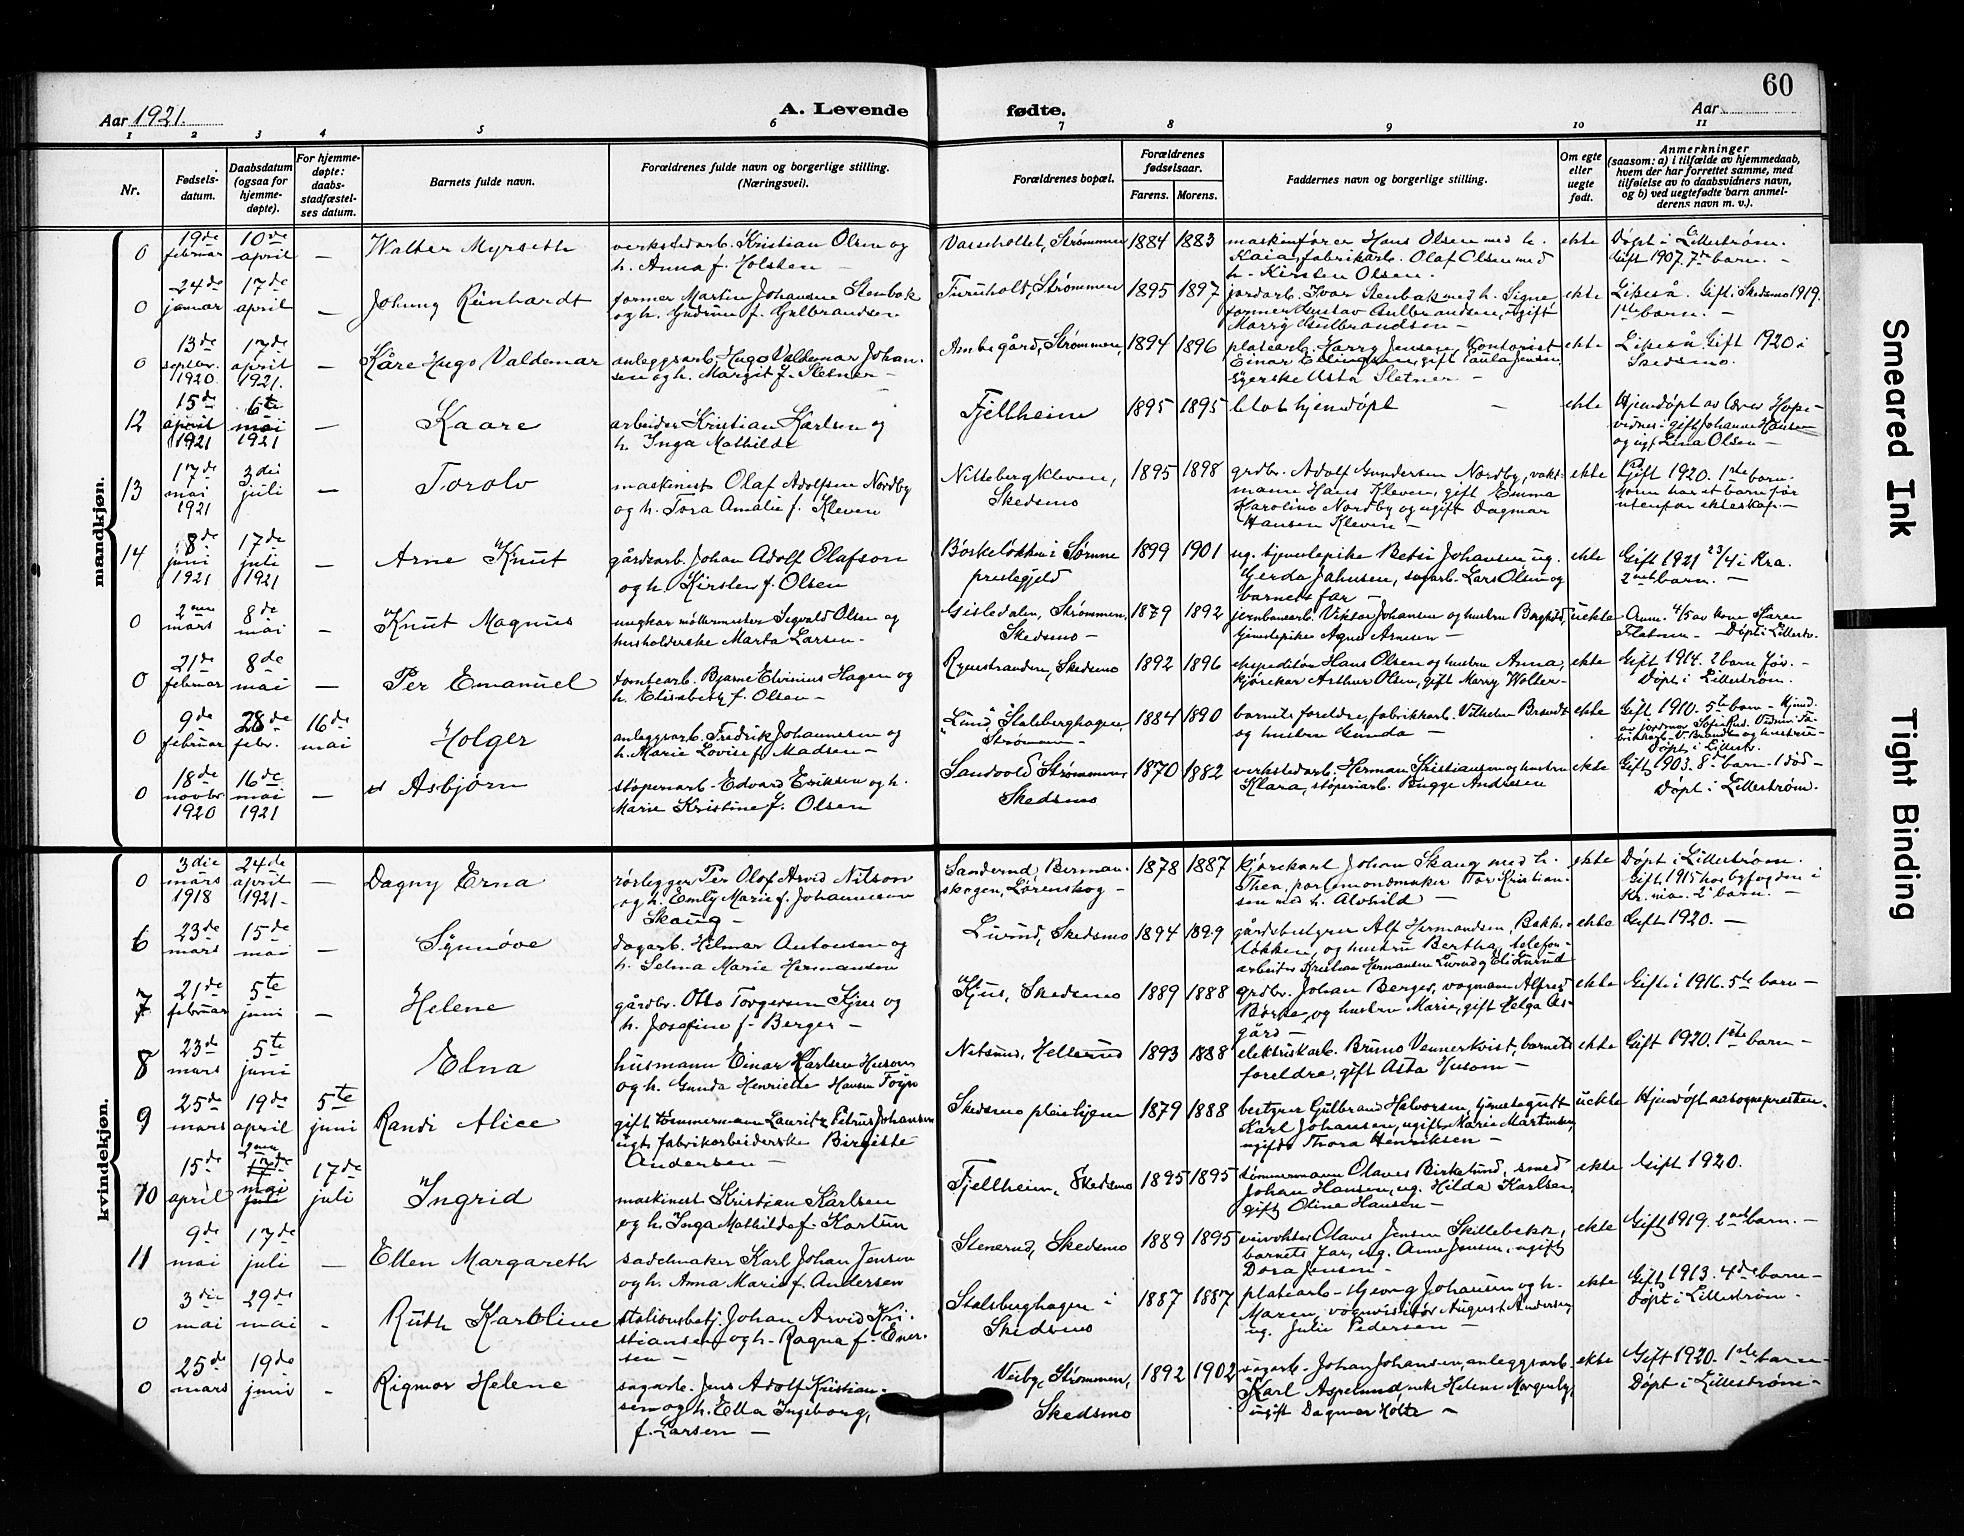 60
Aar 1921.
A. Levende fødte.
Aar
1 2 3 4 5 6 7 8 9 10 11
Nr.
Fødsels-
datum.
Daabsdatum
(ogsaa for
hjemme-
døpte).
For hjemme-
døpte:
daabs-
stadfæstel-
ses datum.
Barnets fulde navn.
Forældrenes fulde navn og borgerlige stilling.
(Næringsvei).
Forældrenes bopæl.
Forældrenes
fødselsaar.
Farens. Morens.
Faddernes navn og borgerlige stilling.
Om egte
eller
uegte
født.
Anmerkninger
(saasom: a) i tilfælde av hjemmedaab,
hvem der har forrettet samme, med
tilføielse av to daabsvidners navn,
og b) ved uegtefødte barn anmel-
derens navn m. v.).
mandkjøn.
0
19de
februar
10de
april
—
Walter Myrseth
verkstedarb. Kristian Olsen og
h. Anna f. Holsten —
Vasseholtet, Strømmen
1884
1883
maskinfører Hans Olsen med h.
Kaia, fabrikarb. Olaf Olsen med
h. Kirsten Olsen.
ekte
Døpt i Lillestrøm.
Gift 1907. 7de barn. —
0
24de
januar
17de
april
—
Johnny Reinhardt
former Martin Johansen Stenbæk
og h. Gudrun f. Gulbrandsen
Furuholt, Strømmen
1895
1897
jordarb. Ivar Stenbæk med h. Signe,
former Gustav Gulbrandsen, ugift
Marry Gulbrandsen —
ekte
Likeså. Gift i Skedsmo 1919.
1ste barn. —
0
13de
septbr.
1920
17de
april
1921.
—
Kåre Hugo Valdemar
anleggsarb. Hugo Valdemar Johan-
sen og h. Margit f. Sletner —
gård, Strømmen,
1894
1896
platearb. Harry Jensen, kontorist
Einar gift Paula Jensen,
syerske Asta Sletner —
ekte
Likeså Gift 1920 i
Skedsmo.
12
15de
april
1921
6te
mai
1921
—
Kaare
arbeider Kristian Karlsen og
h. Inga Mathilde
Fjellheim
1895
1895
blot hjemdøpt —
ekte
Hjemdøpt av lærer Hope —
vidner: gift Johanne Hansen
og ugt. Lina Olsen —
13
17de
mai
1921
3die
juli
—
Torolv
maskinist Olaf Adolfsen Nordby
og h. Tora Amalie f. Kleven
Nittebergkleven,
Skedsmo
1895
1898
grdbr. Adolf Gundersen Nordby, vakt-
mann Hans Kleven, gift Emma
Karoline Nordby og ugift Dagmar
Hansen Kleven —
ekte
Gift 1920. 1ste barn.
Moren har et barn før
utenfor ekteskap. —
14
18de
juni
1921
17de
juli
1921
—
Arne Knut
gårdsarb. Johan Adolf Olafson
og h. Kirsten f. Olsen
Børkeløkken i Sørum
prestegjeld
1899
1901
ug. tjenestepike Betsi Johansen, ug.
Gerda Jahnsen, sagarb. Lars Olsen og
barnets far —
ekte
Gift 1921 23/4 i Kra.
2net barn. —
0
2nen
mars
8de
mai
—
Knut Magnus
ungkar møllermester Sigvald Olsen og
husholderske Marta Larsen —
Gisledalen, Strømmen,
Skedsmo —
1879
1892
jernbanearb. Viktor Johansen og hustru Borghild,
tjenestepike Agnes Arnesen —
uekte
Anm. 4/5 av kone Karen
— Døpt i Lillestr.
0
21de
februar
8de
mai
—
Per Emanuel
tomtearb. Bjarne Elvinius Hagen og
h. Elisabeth f. Olsen —
Rynestranden, Skedsmo
1892
1896
ekspeditør Hans Olsen og hustru Anna,
kjørekar Arthur Olsen, gift Marry Wolter —
ekte
Gift 1914. 2 barn før. —
Døpt i Lillestrøm.
0
9de
februar
28de
febr.
16de
mai
Holger
anleggsarb. Fredrik Johannesen og
h. Marie Lovise f. Madsen —
"Lund", Stalsberghagen,
Strømmen —
1884
1890
barnets foreldre, fabrikkarb. Vilhelm Brandt
og hustru Gunda —
ekte
Gift 1910. 5te barn — Hjemd.
av jordmor Sofie Rud. Vidner: fa-
brikkarb. V. Brandt og hustru —
Døpt i Lillestr.
0
18de
novbr.
1920
16de
mai
1921
—
Asbjørn
støperiarb. Edvard Eriksen og h.
Marie Kristine f. Olsen
Sandvold Strømmen,
Skedsmo
1870
1882
verkstedarb. Herman Kristiansen og hustru
Klara, støperiarb. Bugge Andresen
ekte
Gift 1903. 8de barn — 1 død —
Døpt i Lillestrøm.
kvindekjøn.
0
3die
mars
1918
24de
april
1921 —
—
Dagny Erna
rørlegger Per Olof Arvid Nilson
og h. Emly Marie f. Johannesen
Skaug —
Sanderud, Berman-
skogen, Lørenskog —
1878
1887
kjørekarl Johan Skaug med h.
Thea, portemonnæmaker Tor Kristian-
sen med h. Alvhild —
ekte
Døpt i Lillestrøm.
Gift 1915 hos byfogden i
Kr.ia. 2net barn. —
6
23de
mars
15de
mai
—
Synnøve
dagarb. Hilmar Antonsen og
h. Selma Marie Hermansen
Lurud, Skedsmo
1894
1899
gårdsbestyrer Alf Hermandsen, Bakke-
løkken, og hustru Bertha, telefon-
arbeider Kristian Hermansen Lurud og Eli Lurud
ekte
Gift 1920. —
7
21de
februar
5te
juni
Helene
gårdbr. Otto Torgersen Kjus og
h. Josefine f. Berger —
Kjus, Skedsmo
1889
1888
grdbr. Johan Berger, vognmann Alfred
Børke, og hustru Marie, gift Helga As-
gård —
ekte
Gifte i 1916. 5te barn —
8
23de
mars
5te
juni
Elna
husmann Einar Karlsen Husom
og h. Gunda Henriette Hansen
Nitsund, Hellerud
1893
1888
elektrikarb. Bruno Vennerkvist, barnets
foreldre, gift Asta Husom —
ekte
Gift 1920. 1ste barn —
9
25de
mars
19de
april
5te
juni
Randi Alice
gift tømmermann Lauritz Petrus Johansen
ugt. fabrikarbeiderske Birgitte
Andersen —
Skedsmo pleiehjem
1879
1888
bestyrer Gulbrand Halvorsen, tjenestegutt
Karl Johansen, ugift Marie Martinsen,
ugift Thora Henriksen —
uekte
Hjemdøpt av sognepresten.
10
15de
april
2nen
17de
mai
juli
17de
juli
Ingrid
maskinist Kristian Karlsen
og h. Inga Mathilde f. Kortun
Fjellheim, Skedsmo
1895
1895
tømmermann Olaves Birkelund, smed
Johan Hansen, ug. Hilda Karlsen,
gift Oline Hansen —
ekte
Gift 1920.
11
9de
mai
17de
juli
—
Ellen Margareth
sadelmaker Karl Johan Jensen
og h. Anna Marie f. Andersen
Stenerud, Skedsmo
1889
1895
veivokter Olaves Jensen Skillebekk,
barnets far, ug. Anne Jensen, ugift
Dora Jensen —
ekte
Gift 1919. 2net barn. —
0
3die
mai
29de
mai
-
Ruth Karoline
stationsbetj. Johan Arvid Kri-
stiansen og h. Ragna f. Ener-
sen —
Stalsberghagen i
Skedsmo
1887
1887
platearb. Georg Johansen og h.
Maren, vognvisitør August Andersen,
ug. Julie Pedersen —
ekte
Gift 1913. 4de barn —
Døpt i Lillestrøm —
0
25de
mars
19de
juni
-
Rigmor Helene
sagarb. Jens Adolf Kristian-
sen og h. Ella Ingeborg,
f. Larsen —
Veiby, Strømmen,
Skedsmo
1892
1902
sagarb. Johan Johansen, anleggsarb.
Karl Aspelund, enke Helene Morgenby,
ugift Dagmar Holte —
ekte
Gift 1920. 1ste barn —
Døpt i Lillestrøm —
Smeared Ink
Tight Binding